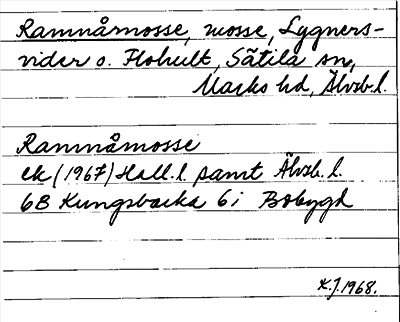 Ramnårnosse, mosse, Lygners-
vider o. Flohult, Sätila sn,
Marks hd, Älvsb.l.
Ramnåmosse
ek (1967) Hall.l. samt Älvsb.l.
6B Kungsbacka 6i Bobygd
K.J.1968.